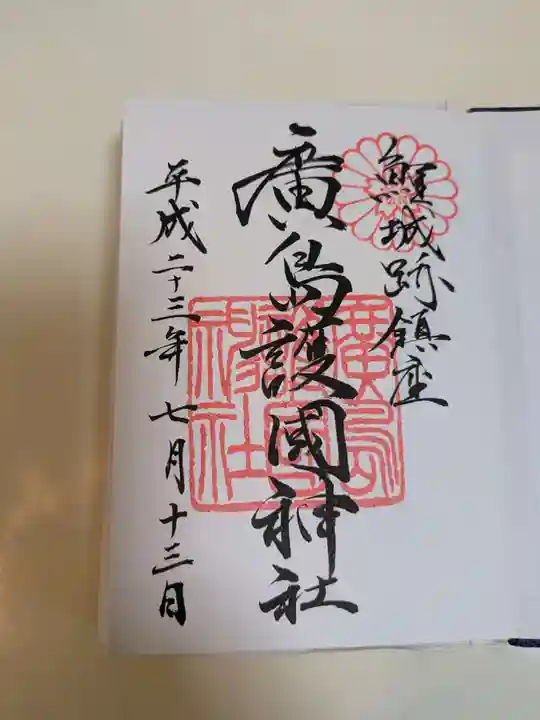 鯉城跡鎮座
廣島護國神社
廣島護國神社
平成二十三年七月十三日